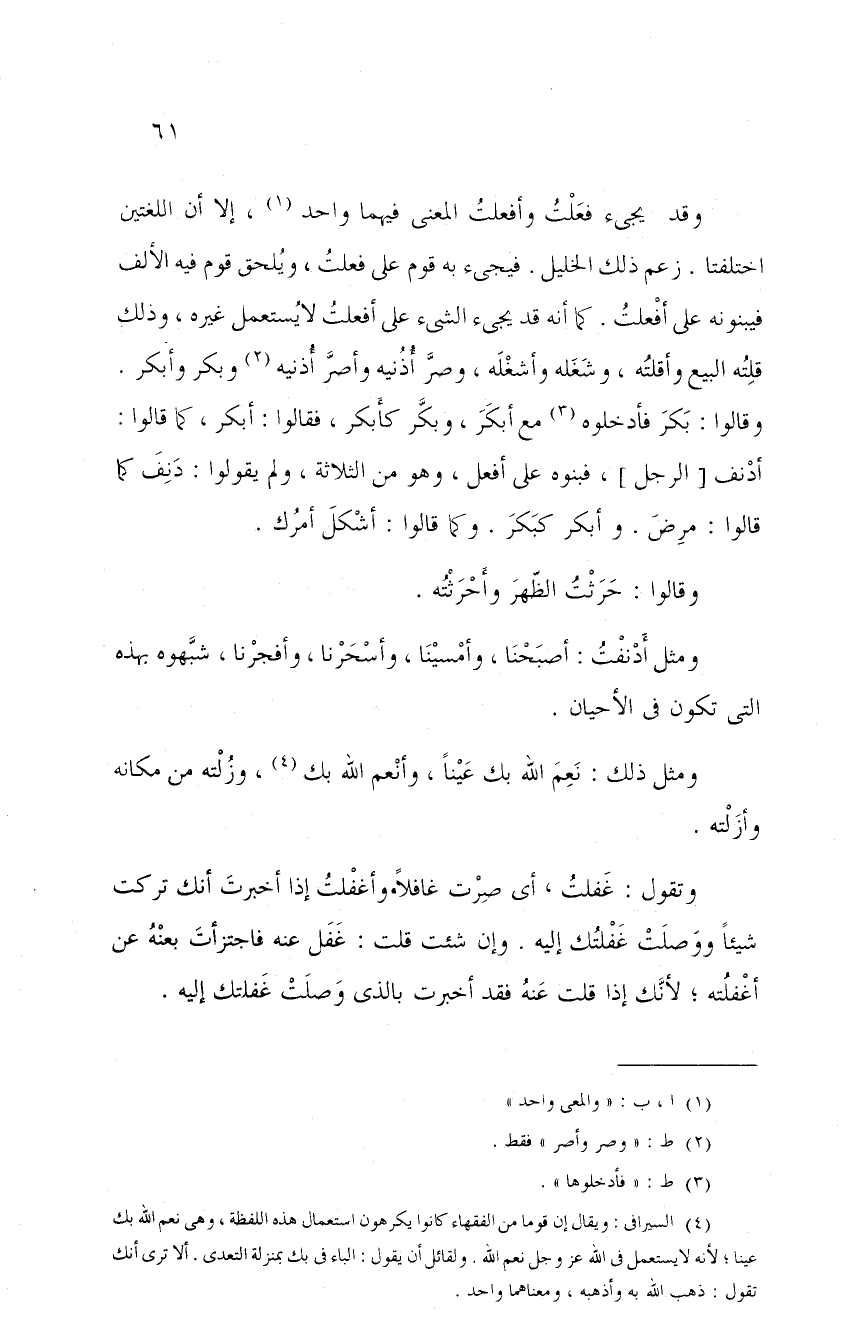 ٦١
وقد يجىء فعَلْتُ وأفعلتُ المعنى فيهما واحد (١) ، إلا أن اللغتين
اختلفتا . زعم ذلك الخليل . فيجىء به قوم على فعلتُ ، ويُلحق قوم فيه الألف
فيبنونه على أفْعلتُ . كما أنه قد يجىء الشىء على أفعلتُ لايُستعمل غيره ، وذلك
قلِتُه البيع وأقلتُه ، وشَغَله وأشغْلَه ، وصرَّ أُذُنيه وأصرَّ أُذنيه (٢) وبكر وأبكر .
وقالوا : بَكرَ فأدخلوه (٣) مع أبكَرَ ، وبكَّر كأَبكر ، فقالوا : أبكر ، كما قالوا :
أدْنف [ الرجل ] ، فبنوه على أفعل ، وهو من الثلاثة ، ولم يقولوا : دَنِفَ كما
قالوا : مرِضَ . و أبكر كبَكرَ . وكما قالوا : أشْكلَ أمرُك .
وقالوا : حَرَثْتُ الظّهرَ وأَحْرَثْتُه .
ومثل أَدْنفْتُ : أصبَحْنَا ، وأمْسيْنَا ، وأسْحَرْنا ، وأفجرْنا ، شبَّهوه بهذه
التى تكون فى الأحيان .
ومثل ذلك : نَعِمَ الله بك عَيْناً ، وأنْعم الله بك (٤) ، وزُلْته من مكانه
وأزَلْته .
وتقول : غَفلتُ ، أى صِرْت غافلاً، وأغفْلتُ إذا أخبرتَ أنك تركت
شيئاً ووَصلَتْ غَفْلتُك إليه . وإن شئت قلت : غَفَل عنه فاجتزأتَ بعنْهُ عن
أغْفلُته ؛ لأنَّك إذا قلت عَنهُ فقد أخبرت بالذى وَصلَتْ غَفلتك إليه .
(١) ا ، ب : « والمعى واحد »
(٢) ط : « وصر وأصر » فقط .
(٣) ط : « فأدخلوها » .
(٤) السيرافى : ويقال إن قوما من الفقهاء كانوا يكرهون استعمال هذه اللفظة ، وهى نعم الله بك
عينا ؛ لأنه لايستعمل فى الله عز وجل نعم الله . ولقائل أن يقول : الباء فى بك بمنزلة التعدى . ألا ترى أنك
تقول : ذهب الله به وأذهبه ، ومعناهما واحد .